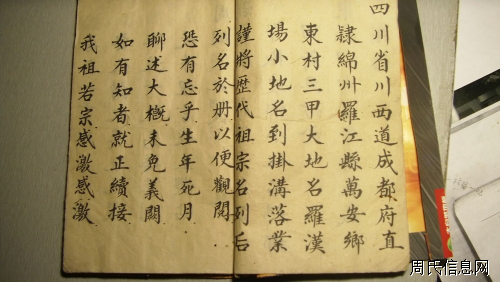 四川省川西道成都府直
隷綿州羅江縣萬安鄉
東村三甲大地名羅漢
場小地名到掛溝落業
謹將歷代祖宗名列后
列名於册以便觀閱
恐有忘乎生年死月
聊述大概未免義闕
如有知者就正續接
我祖若宗感激感激
周氏信息网